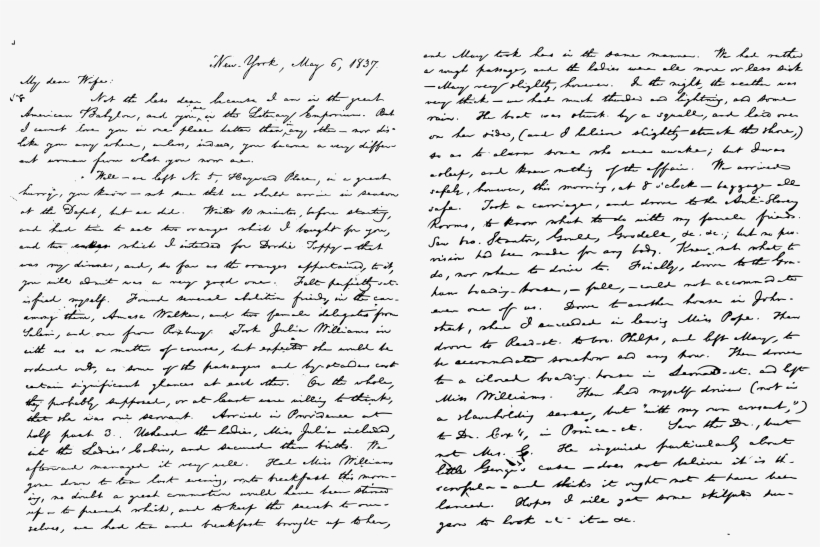 New-York, May 6, 1837
My dear Wife:
Not the less dear, because I am in the great
American Babylon, and you are in the Literary Emporium. But
I cannot love you in one place better than any other — nor dis-
like you any where, unless, indeed, you become a very differ-
ent woman from what you now are.
Well — we left No. 5, Hayward Place, in a great
hurry, you know — not sure that we should arrive in season
at the Depot, but we did. Waited 10 minutes, before starting,
and had time to eat two oranges which I bought for you,
and two which I intended for Dordie Toppy — that
was my dinner, and, so far as the oranges appertained to it,
you will admit was a very good one. Felt perfectly sat-
isfied myself. Found several abolition friends in the cars —
among them, Amasa Walker, and two female delegates from
Salem, and one from Roxbury. Took Julia Williams in
with us as a matter of course, but expected she would be
ordered out, as some of the passengers and by-standers cast
certain significant glances at each other. On the whole,
they probably supposed, or at least were willing to think,
that she was our servant. Arrived in Providence at
half past 3. Ushered the ladies, Miss Julia included,
into the Ladies' Cabin, and secured their births. We
afterward managed it very well. Had Miss Williams
gone down to tea last evening, or to breakfast this morn-
ing, no doubt a great commotion would have been stirred
up — to prevent which, and to keep the secret to our-
selves, we had tea and breakfast brought up to her,
and May took hers in the same manner. We had rather
a rough passage, and the ladies were all more or less sick
— May very slightly, however. In the night, the weather was
very thick — we had much thunder and lightning, and some
rain. The boat was struck by a squall, and laid over
on her side, (and I believe slightly struck the shore,)
so as to alarm some who were awake; but I was
asleep, and knew nothing of the affair. We arrived
safely, however, this morning, at 8 o'clock — baggage all
safe. Took a carriage, and drove to the Anti-Slavery
Rooms, to know what to do with my female friends.
Saw bro. Stanton, Gould, Grosdell, &c. &c.; but no pro-
vision had been made for any body. Knew not what to
do, nor where to drive to. Finally, drove to the Gra-
ham boarding-house, — full, — could not accommodate
even one of us. Drove to another house in John-
street, where I succeeded in leaving Miss Pope. Then
drove to Reed-st. to bro. Phelps, and left May, to
be accommodated somehow and any how. Then drove
to a colored boarding house in Leonard-st. and left
Miss Williams. Then had myself driven (not in
a slaveholding sense, but "with my own consent,")
to Dr. Cox's, in Prince-st. Saw the Dr., but
not Mrs. C. He inquired particularly about
little George's case — does not believe it is the
scrofula — and thinks it ought not to have been
lanced. Hopes I will get some skilful sur-
geon to look at it — &c.